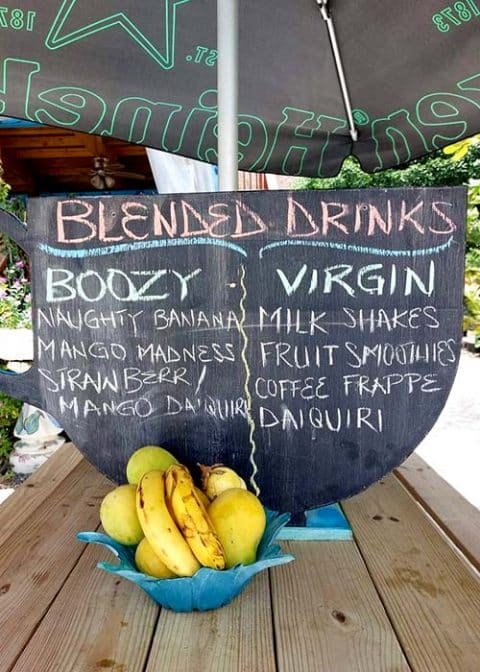 1873
EST.
Heineken
1873
BLENDED DRINKS
BOOZY
NAUGHTY BANANA
MANGO MADNESS
STRAWBERR/
MANGO DAIQUIRI
VIRGIN
MILK SHAKES
FRUIT SMOOTHIES
COFFEE FRAPPE
DAIQUIRI